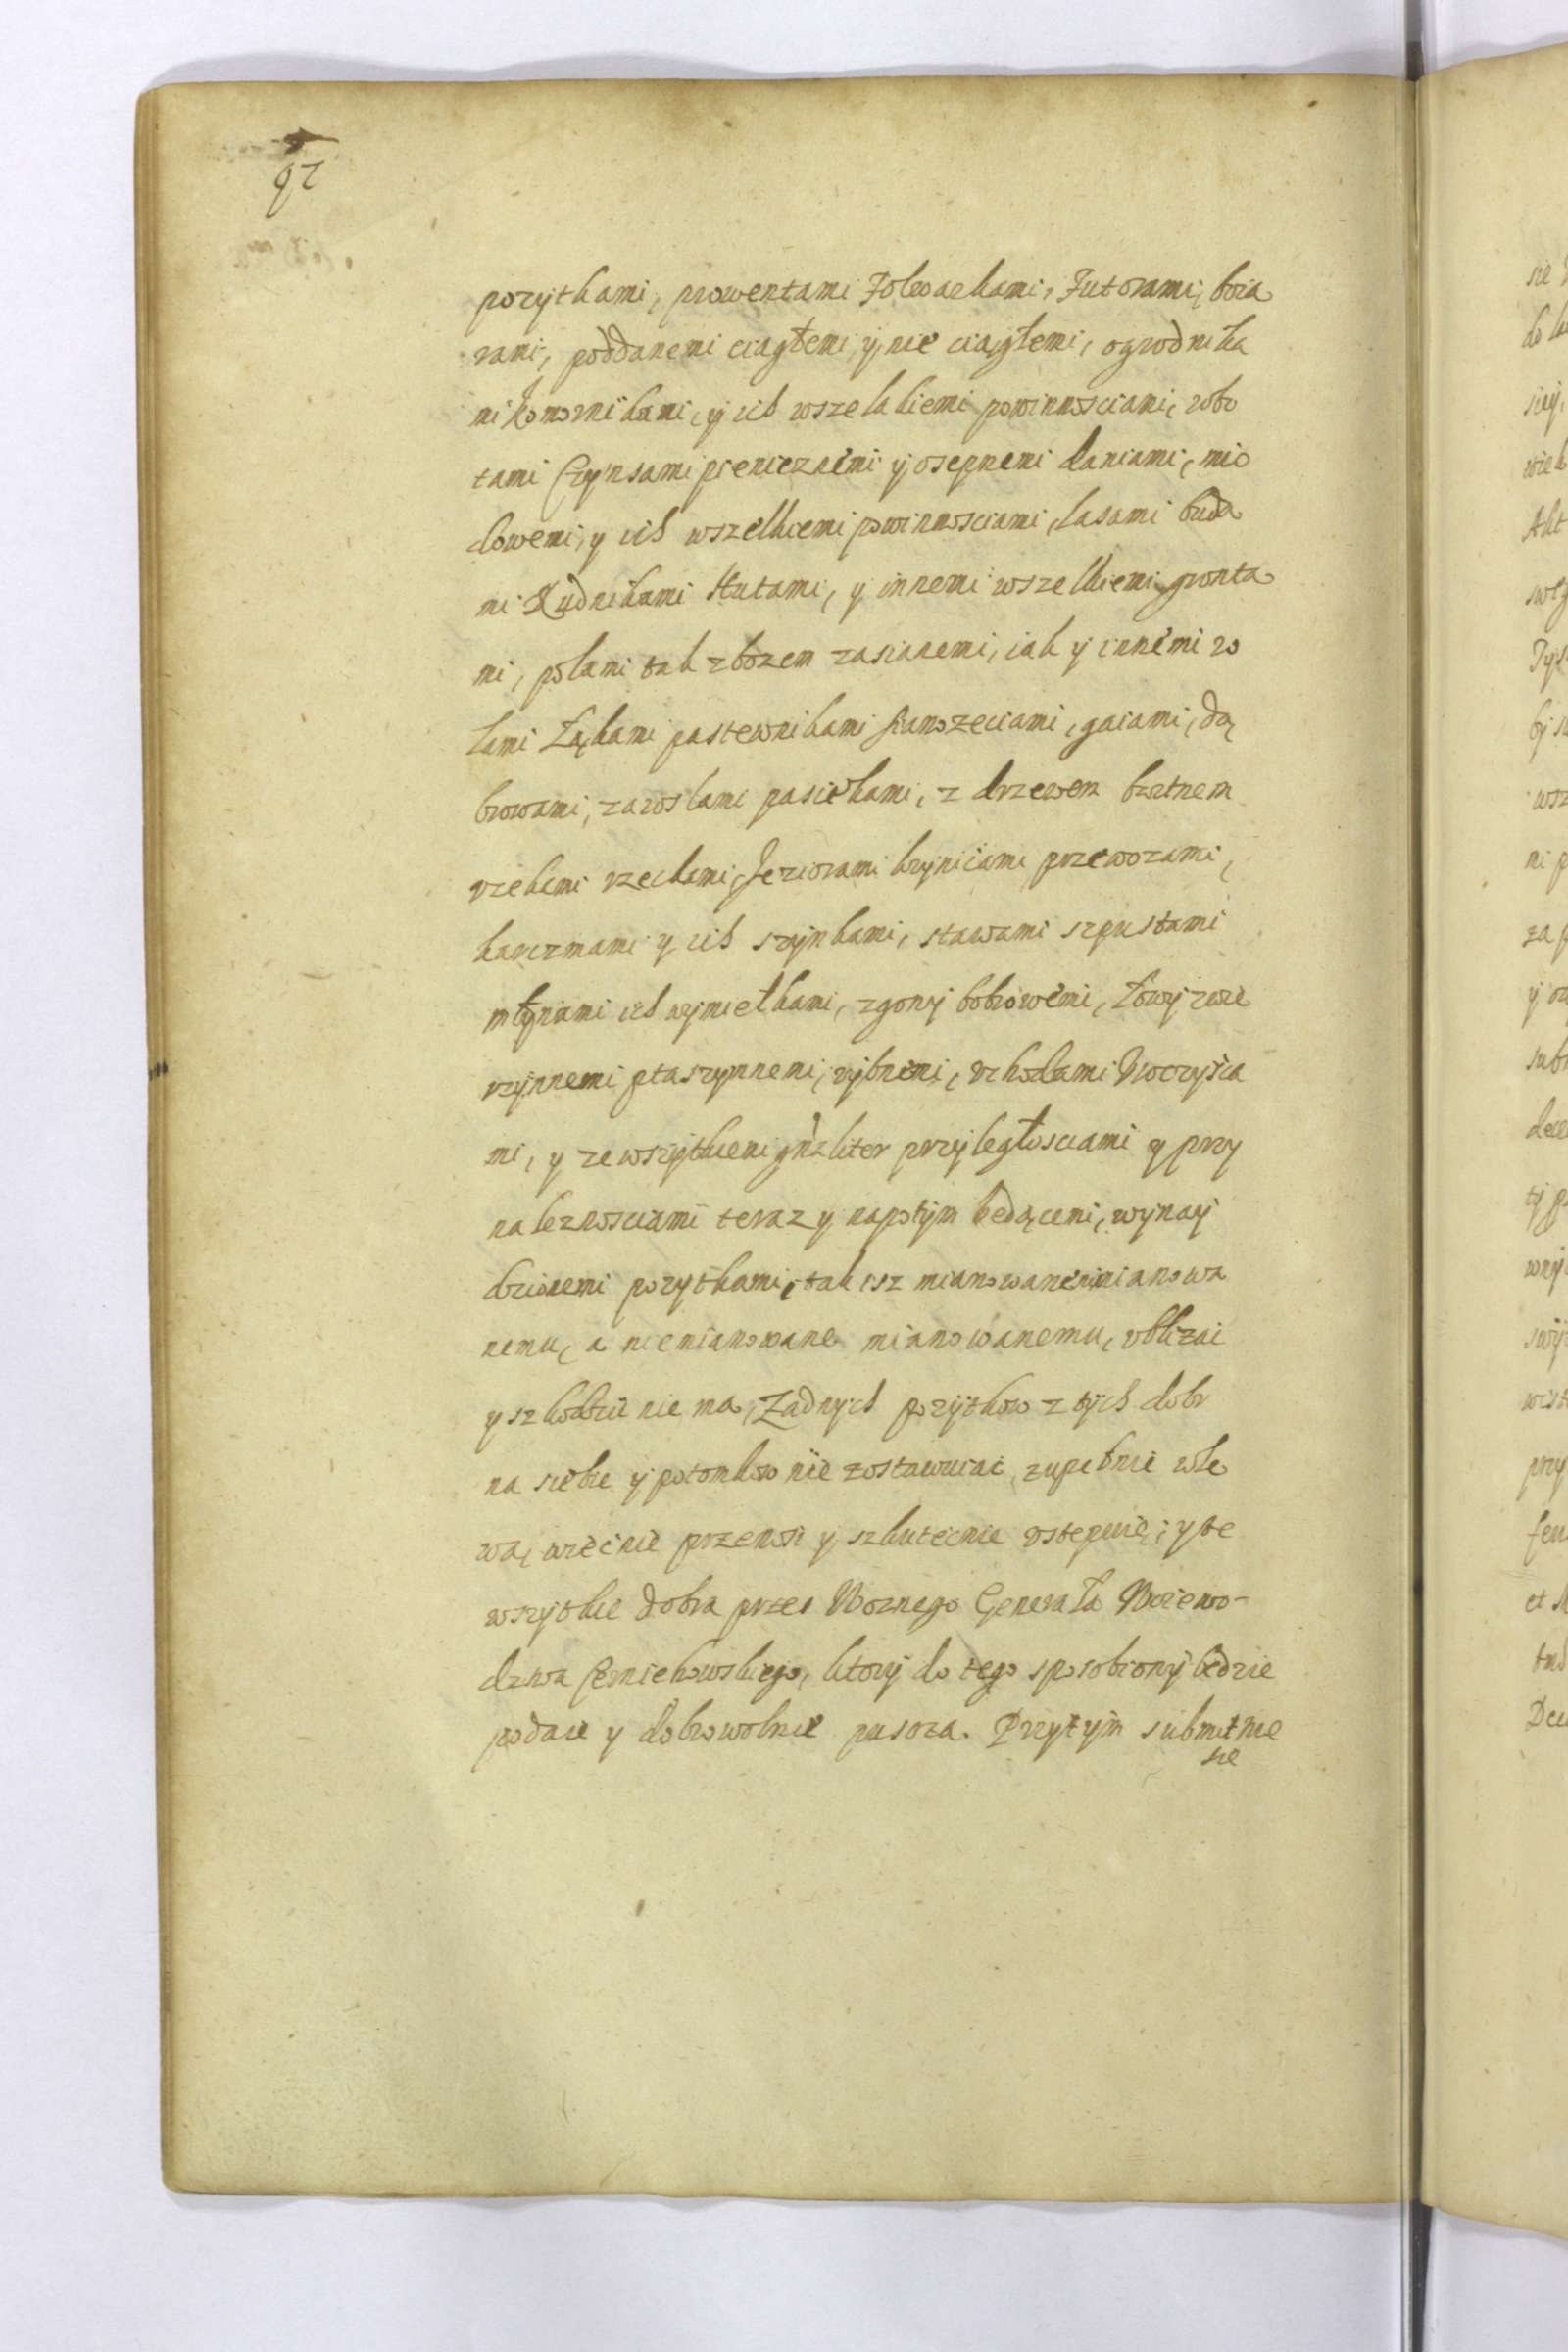 92
pozytkami, prowentami Folwarkami, Futorami, boia
rami, poddanemi ciągłemi, y nie ciągłemi, ogrodnika
mi Komornikami, y ich wszelakiemi powinnosciami, robo
tami Czynsami pienieznemi y osepnemi daniami, mio
dowemi, y ich wszelkiemi powinnosciami, lasami buda
mi Rudnikami Hutami, y innemi wszelkiemi gronta
mi, polami tak zbozem zasianemi, iak y innemi ro
lami Łąkami pastewnikami sianozeciami, gaiami, dą
browami, zaroslami pasiekami, z drzewem bartnem
rzekami rzeckami, Jeziorami krynicami przewozami,
karczmami y ich szynkami, stawami szpustami
młynami ich wymiełkami, zgony bobrowemi, Łowy zwie
rzynnemi ptaszynnemi, rybnemi, vchodami Vroczysca
mi, y ze wszytkiemi przyległosciami y przy
naleznosciami teraz y napotym bedącemi, wynay
dzionemi pozytkami, tak isz mianowane nimianowa
nemu, a niemianowane mianowanemu, vblizac
y szkodzic nie ma, Zadnych pozytkow z tych dobr
na siebie y potomkow nie zostawuiac, zupełnie wle
wa, wiecnie przenosi y szkutecnie vstepuie, y te
wszytkie dobra przes Woznego Generała Woiewo-
dztwa Cerniehowskiego, ktory do tego sposobiony bedzie
podaie y dobrowolnie puscza. Przytym submitnie
sie